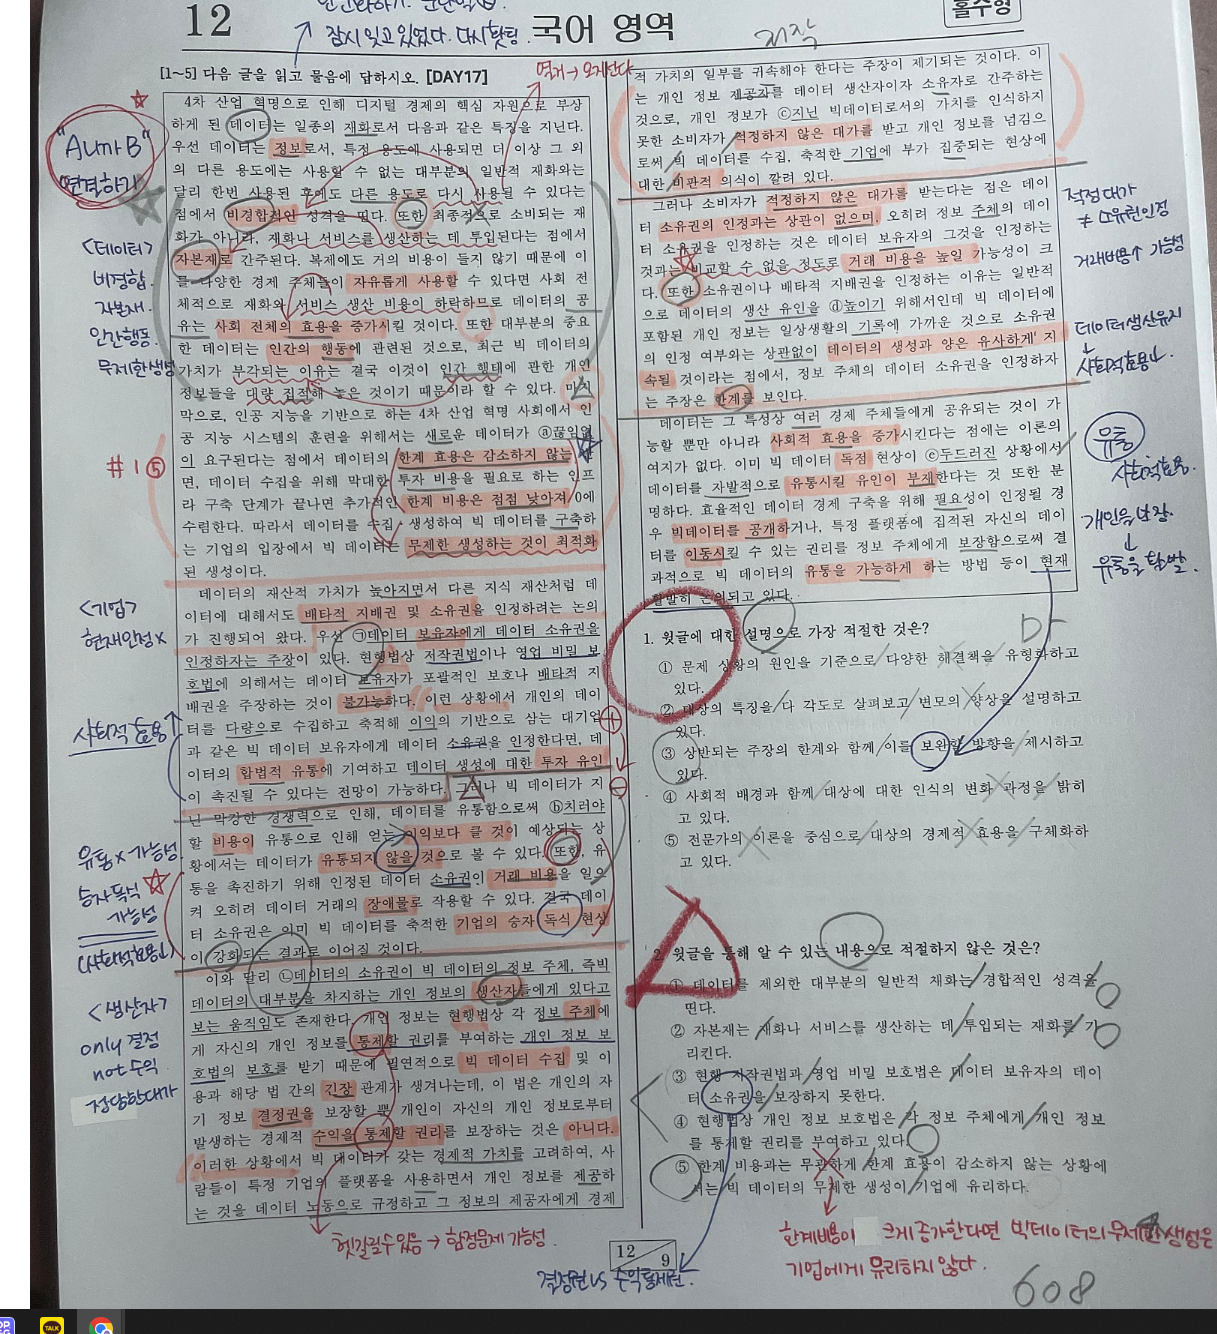 12
잠시 잊고 있었다. 다시 핫팅.
국어 영역
홀수형
[1~5] 다음 글을 읽고 물음에 답하시오. [DAY17]
4차 산업 혁명으로 인해 디지털 경제의 핵심 자원으로 부상
하게 된 데이터는 일종의 재화로서 다음과 같은 특징을 지닌다.
우선 데이터는 정보로서, 특정 용도에 사용되면 더 이상 그 외
의 다른 용도에는 사용할 수 없는 대부분의 일반적 재화와는
달리 한번 사용된 후에도 다른 용도로 다시 사용될 수 있다는
점에서 비경합적인 성격을 띤다. 또한 최종적으로 소비되는 재
화가 아니라, 재화나 서비스를 생산하는 데 투입된다는 점에서
자본재로 간주된다. 복제에도 거의 비용이 들지 않기 때문에 이
를 다양한 경제 주체들이 자유롭게 사용할 수 있다면 사회 전
체적으로 재화와 서비스 생산 비용이 하락하므로 데이터의 공
유는 사회 전체의 효용을 증가시킬 것이다. 또한 대부분의 중요
한 데이터는 인간의 행동에 관련된 것으로, 최근 빅 데이터의
가치가 부각되는 이유는 결국 이것이 인간 행태에 관한 개인
정보들을 대량 집적해 놓은 것이기 때문이라 할 수 있다. 마지
막으로, 인공 지능을 기반으로 하는 4차 산업 혁명 사회에서 인
공 지능 시스템의 훈련을 위해서는 새로운 데이터가 ⓐ끊임없
이 요구된다는 점에서 데이터의 한계 효용은 감소하지 않는 반
면, 데이터 수집을 위해 막대한 투자 비용을 필요로 하는 인프
라 구축 단계가 끝나면 추가적인 한계 비용은 점점 낮아져 0에
수렴한다. 따라서 데이터를 수집·생성하여 빅 데이터를 구축하
는 기업의 입장에서 빅 데이터는 무제한 생성하는 것이 최적화
된 생성이다.
데이터의 재산적 가치가 높아지면서 다른 지식 재산처럼 데
이터에 대해서도 배타적 지배권 및 소유권을 인정하려는 논의
가 진행되어 왔다. 우선 ㉠데이터 보유자에게 데이터 소유권을
인정하자는 주장이 있다. 현행법상 저작권법이나 영업 비밀 보
호법에 의해서는 데이터 보유자가 포괄적인 보호나 배타적 지
배권을 주장하는 것이 불가능하다. 이런 상황에서 개인의 데이
터를 다량으로 수집하고 축적해 이익의 기반으로 삼는 대기업
과 같은 빅 데이터 보유자에게 데이터 소유권을 인정한다면, 데
이터의 합법적 유통에 기여하고 데이터 생성에 대한 투자 유인
이 촉진될 수 있다는 전망이 가능하다. 그러나 빅 데이터가 지
닌 막강한 경쟁력으로 인해, 데이터를 유통함으로써 ⓑ치러야
할 비용이 유통으로 인해 얻는 이익보다 클 것이 예상되는 상
황에서는 데이터가 유통되지 않을 것으로 볼 수 있다. 또한, 유
통을 촉진하기 위해 인정된 데이터 소유권이 거래 비용을 일으
켜 오히려 데이터 거래의 장애물로 작용할 수 있다. 결국 데이
터 소유권은 이미 빅 데이터를 축적한 기업의 승자 독식 현상
이 강화되는 결과로 이어질 것이다.
이와 달리 ㉡데이터의 소유권이 빅 데이터의 정보 주체, 즉 빅
데이터의 대부분을 차지하는 개인 정보의 생산자들에게 있다고
보는 움직임도 존재한다. 개인 정보는 현행법상 각 정보 주체에
게 자신의 개인 정보를 통제할 권리를 부여하는 개인 정보 보
호법의 보호를 받기 때문에 필연적으로 빅 데이터 수집 및 이
용과 해당 법 간의 긴장 관계가 생겨나는데, 이 법은 개인의 자
기 정보 결정권을 보장할 뿐 개인이 자신의 개인 정보로부터
발생하는 경제적 수익을 통제할 권리를 보장하는 것은 아니다.
이러한 상황에서 빅 데이터가 갖는 경제적 가치를 고려하여, 사
람들이 특정 기업의 플랫폼을 사용하면서 개인 정보를 제공하
는 것을 데이터 노동으로 규정하고 그 정보의 제공자에게 경제
적 가치의 일부를 귀속해야 한다는 주장이 제기되는 것이다. 이
는 개인 정보 제공자를 데이터 생산자이자 소유자로 간주하는
것으로, 개인 정보가 ⓒ지닌 빅데이터로서의 가치를 인식하지
못한 소비자가 적정하지 않은 대가를 받고 개인 정보를 넘김으
로써 빅 데이터를 수집, 축적한 기업에 부가 집중되는 현상에
대한 비판적 의식이 깔려 있다.
그러나 소비자가 적정하지 않은 대가를 받는다는 점은 데이
터 소유권의 인정과는 상관이 없으며, 오히려 정보 주체의 데이
터 소유권을 인정하는 것은 데이터 보유자의 그것을 인정하는
것과는 비교할 수 없을 정도로 거래 비용을 높일 가능성이 크
다. 또한 소유권이나 배타적 지배권을 인정하는 이유는 일반적
으로 데이터의 생산 유인을 ⓓ높이기 위해서인데 빅 데이터에
포함된 개인 정보는 일상생활의 기록에 가까운 것으로 소유권
의 인정 여부와는 상관없이 데이터의 생성과 양은 유사하게 지
속될 것이라는 점에서, 정보 주체의 데이터 소유권을 인정하자
는 주장은 한계를 보인다.
데이터는 그 특성상 여러 경제 주체들에게 공유되는 것이 가
능할 뿐만 아니라 사회적 효용을 증가시킨다는 점에는 이론의
여지가 없다. 이미 빅 데이터 독점 현상이 ⓔ두드러진 상황에서
데이터를 자발적으로 유통시킬 유인이 부재한다는 것 또한 분
명하다. 효율적인 데이터 경제 구축을 위해 필요성이 인정될 경
우 빅데이터를 공개하거나, 특정 플랫폼에 집적된 자신의 데이
터를 이동시킬 수 있는 권리를 정보 주체에게 보장함으로써 결
과적으로 빅 데이터의 유통을 가능하게 하는 방법 등이 현재
활발히 논의되고 있다.
1. 윗글에 대한 설명으로 가장 적절한 것은?
① 문제 상황의 원인을 기준으로 다양한 해결책을 유형화하고
있다.
② 대상의 특징을 다 각도로 살펴보고 변모의 양상을 설명하고
있다.
③ 상반되는 주장의 한계와 함께 이를 보완할 방향을 제시하고
있다.
④ 사회적 배경과 함께 대상에 대한 인식의 변화 과정을 밝히
고 있다.
⑤ 전문가의 이론을 중심으로 대상의 경제적 효용을 구체화하
고 있다.
2. 윗글을 통해 알 수 있는 내용으로 적절하지 않은 것은?
① 데이터를 제외한 대부분의 일반적 재화는 경합적인 성격을
띤다.
② 자본재는 재화나 서비스를 생산하는 데 투입되는 재화를 가
리킨다.
③ 현행 저작권법과 영업 비밀 보호법은 데이터 보유자의 데이
터 소유권을 보장하지 못한다.
④ 현행법상 개인 정보 보호법은 각 정보 주체에게 개인 정보
를 통제할 권리를 부여하고 있다.
⑤ 한계 비용과는 무관하게 한계 효용이 감소하지 않는 상황에
서는 빅 데이터의 무제한 생성이 기업에 유리하다.
"A니까 B"
연결하기
<데이터>
비경합.
자본재.
인간행동
무제한생성
#1⑤
<기업>
현재인정×
사회적 효용↑
유통× 가능성
승자독식
가능성
(사회적효용↓)
<생산자>
only 결정
not 수익
정당한대가
적정대가
≠ 소유권인정
거래비용↑ 가능성
데이터생산유지
↓
사회적효용↓.
유통
사회적효용.
개인을 보장.
↓
유통을 활발.
헷갈릴수있음 → 함정문제 가능성.
결정권 vs 수익통제권.
한계비용이 크게 증가한다면 빅데이터의 무제한 생성은
기업에게 유리하지 않다.
12
9
608
TALK